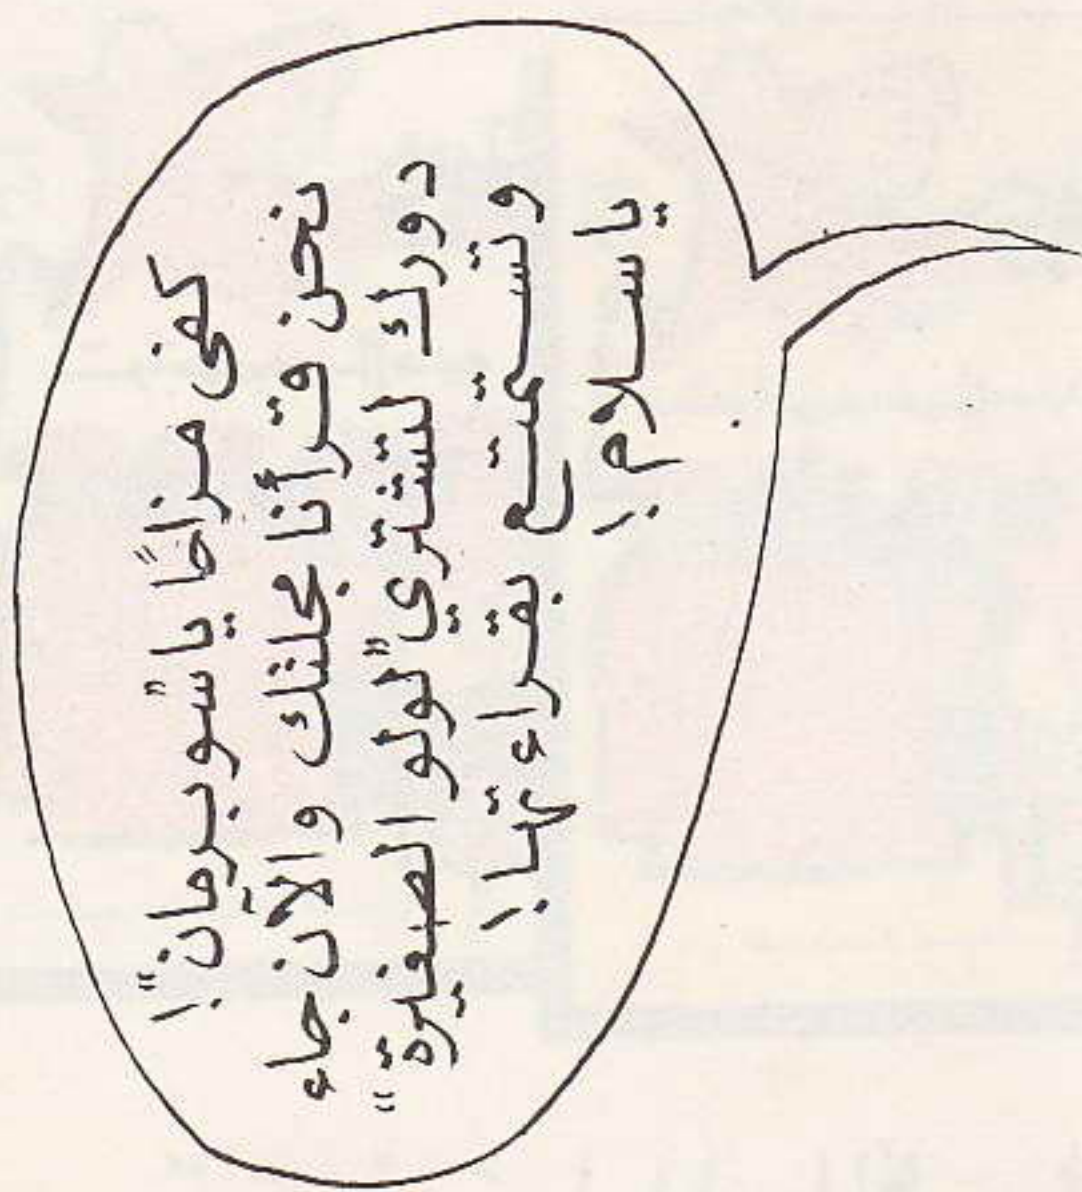 كفى مزاحًا يا "سوبرمان"!
نحن قرأنا مجلتك والآن جاء
دورك لتشتري "لولو الصغيرة"
وتستمتع بقراءتها!
يا سلام!